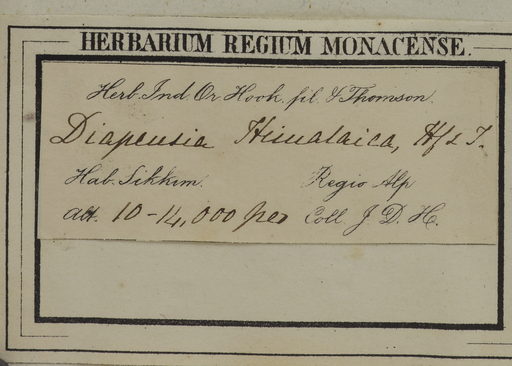 HERBARIUM REGIUM MONACENSE.
Herb. Ind. Or. Hook. fil. & Thomson.
Diapensia Himalaica, Hf & T.
Hab. Sikkim. Regio Alp
alt. 10-14,000 ped Coll. J. D. H.